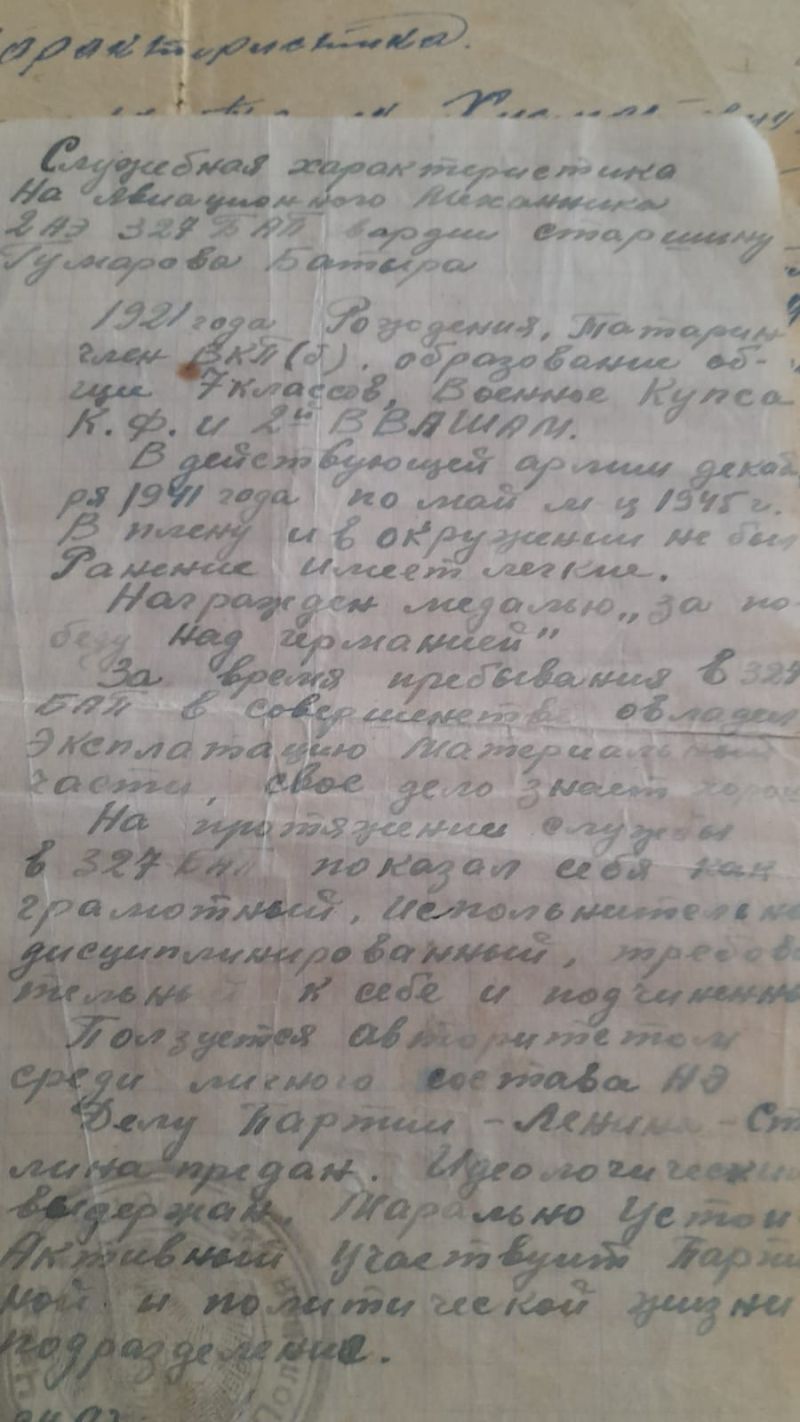 характеристика.
Служебная характеристика
на Авиационного Механника
2 АЭ 327 БАП гвардии старшину
Гумарова Батыра
1921 года Рождения, Татарин
член ВКП(б). образование об-
щие 7 классов, Военное Купса
К. Ф. и 2ᵘ ВВАШАМ.
В действующей армии декаб
ря 1941 года по май м-ц 1945 г.
В плену и в окружении не был
Ранение имеет легкие.
Награжден медалью „за по-
беду над германией"
За время пребывания в 327
БАП в совершенстве овладел
Эксплатацию Материальной
части, свое дело знает хорош
На протяжении службы
в 327 БАП показал себя как
грамотный, Исполнительн
дисциплинированный, требова
тельный к себе и подчиненн
Ползуется авторитетом
среди личного состава АЭ
Делу Партии - Ленина - Ст
лина предан. Идеологически
выдержан. Марально Устои
Активный Участвует Парти
ной и политической жизни
подразделение.